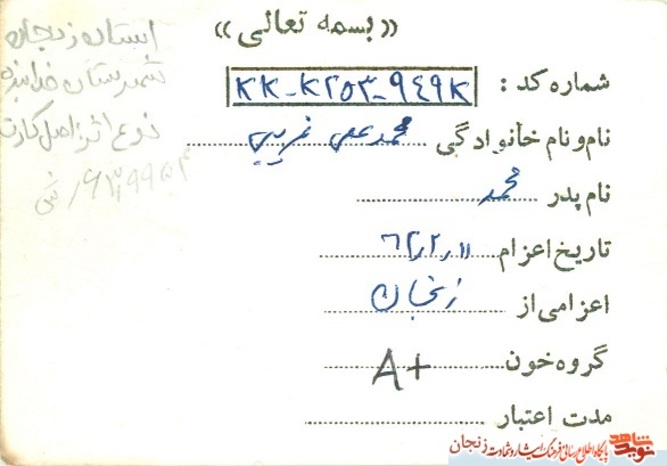 «بسمه تعالی»
شماره کد : KK-K253-949K
نام و نام خانوادگی محمدعلی غریبی
نام پدر محمد
تاریخ اعزام ۶۲/۲/۱۱
اعزامی از زنجان
گروه خون A+
مدت اعتبار
استان زنجان
شهرستان خدابنده
نوع اثر: اصل کارت
نوید شاهد
پایگاه اطلاع رسانی فرهنگ ایثار و شهادت زنجان